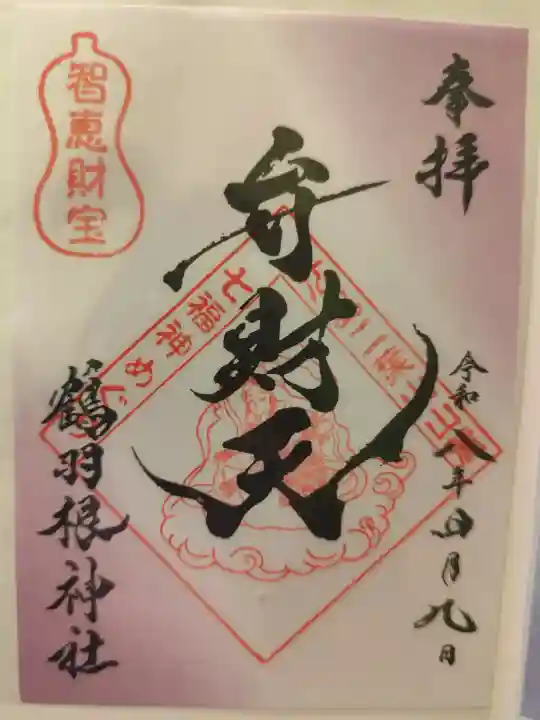 奉拝
令和八年四月九日
弁財天
七福神めぐり
智恵財宝
鶴羽根神社